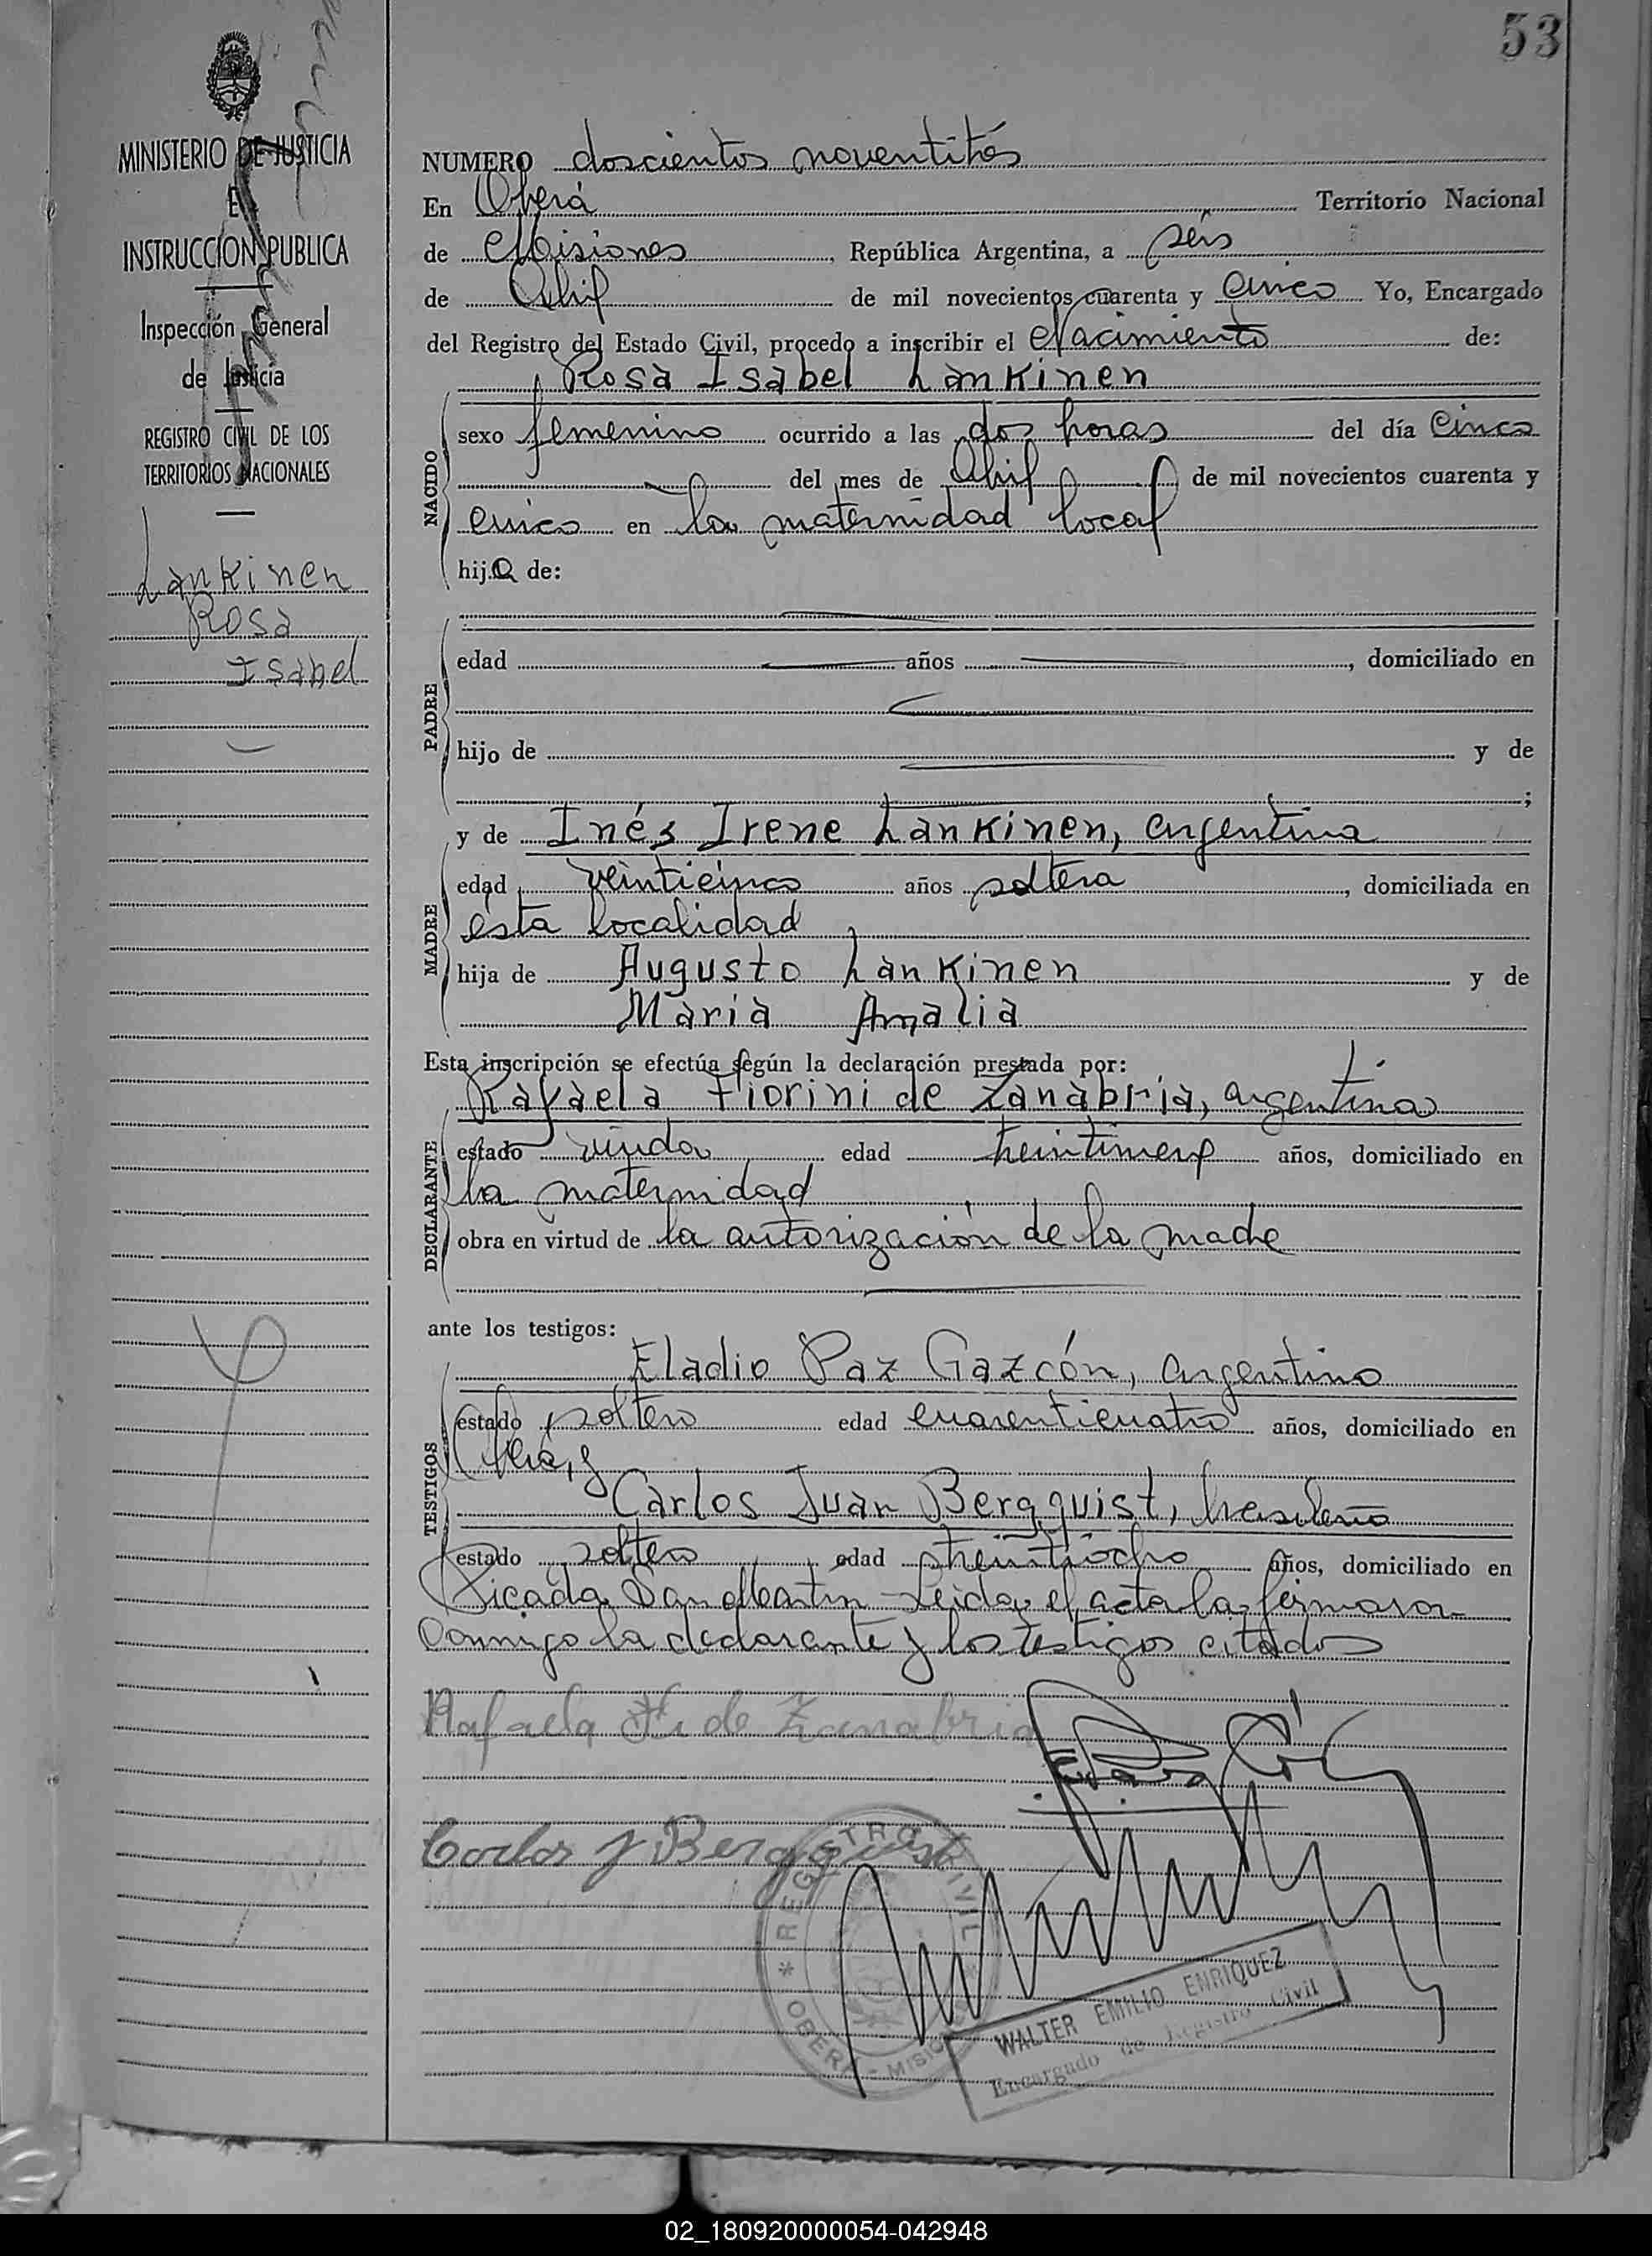 53
MINISTERIO DE JUSTICIA
E
INSTRUCCIÓN PUBLICA
Inspección General
de Justicia
REGISTRO CIVIL DE LOS
TERRITORIOS NACIONALES
Lankinen
Rosa
Isabel
NUMERO doscientos noventitrés
En Oberá Territorio Nacional
de Misiones, República Argentina, a seis
de Abril de mil novecientos cuarenta y cinco Yo, Encargado
del Registro del Estado Civil, procedo a inscribir el Nacimiento de:
Rosa Isabel Lankinen
NACIDO
sexo femenino ocurrido a las dos horas del día cinco
del mes de Abril de mil novecientos cuarenta y
cinco en la maternidad local
hija de:
PADRE
edad años, domiciliado en
hijo de y de
;
MADRE
y de Inés Irene Lankinen, argentina
edad veinticinco años soltera, domiciliada en
esta localidad
hija de Augusto Lankinen y de
Maria Amalia
Esta inscripción se efectúa según la declaración prestada por:
DECLARANTE
Rafaela Fiorini de Zanabria, argentina
estado viuda edad treintinueve años, domiciliado en
la maternidad
obra en virtud de la autorización de la madre
ante los testigos:
TESTIGOS
Eladio Paz Gazcón, argentino
estado soltero edad cuarenticuatro años, domiciliado en
Oberá, y
Carlos Juan Bergquist, brasileño
estado soltero edad treintiocho años, domiciliado en
Picada San Martin - Leida el acta la firmaron
conmigo la declarante y los testigos citados
Rafaela F. de Zanabria
Carlos J Bergquist
REGISTRO CIVIL
* OBERA - MISIONES *
WALTER EMILIO ENRIQUEZ
Encargado de Registro Civil
02_180920000054-042948